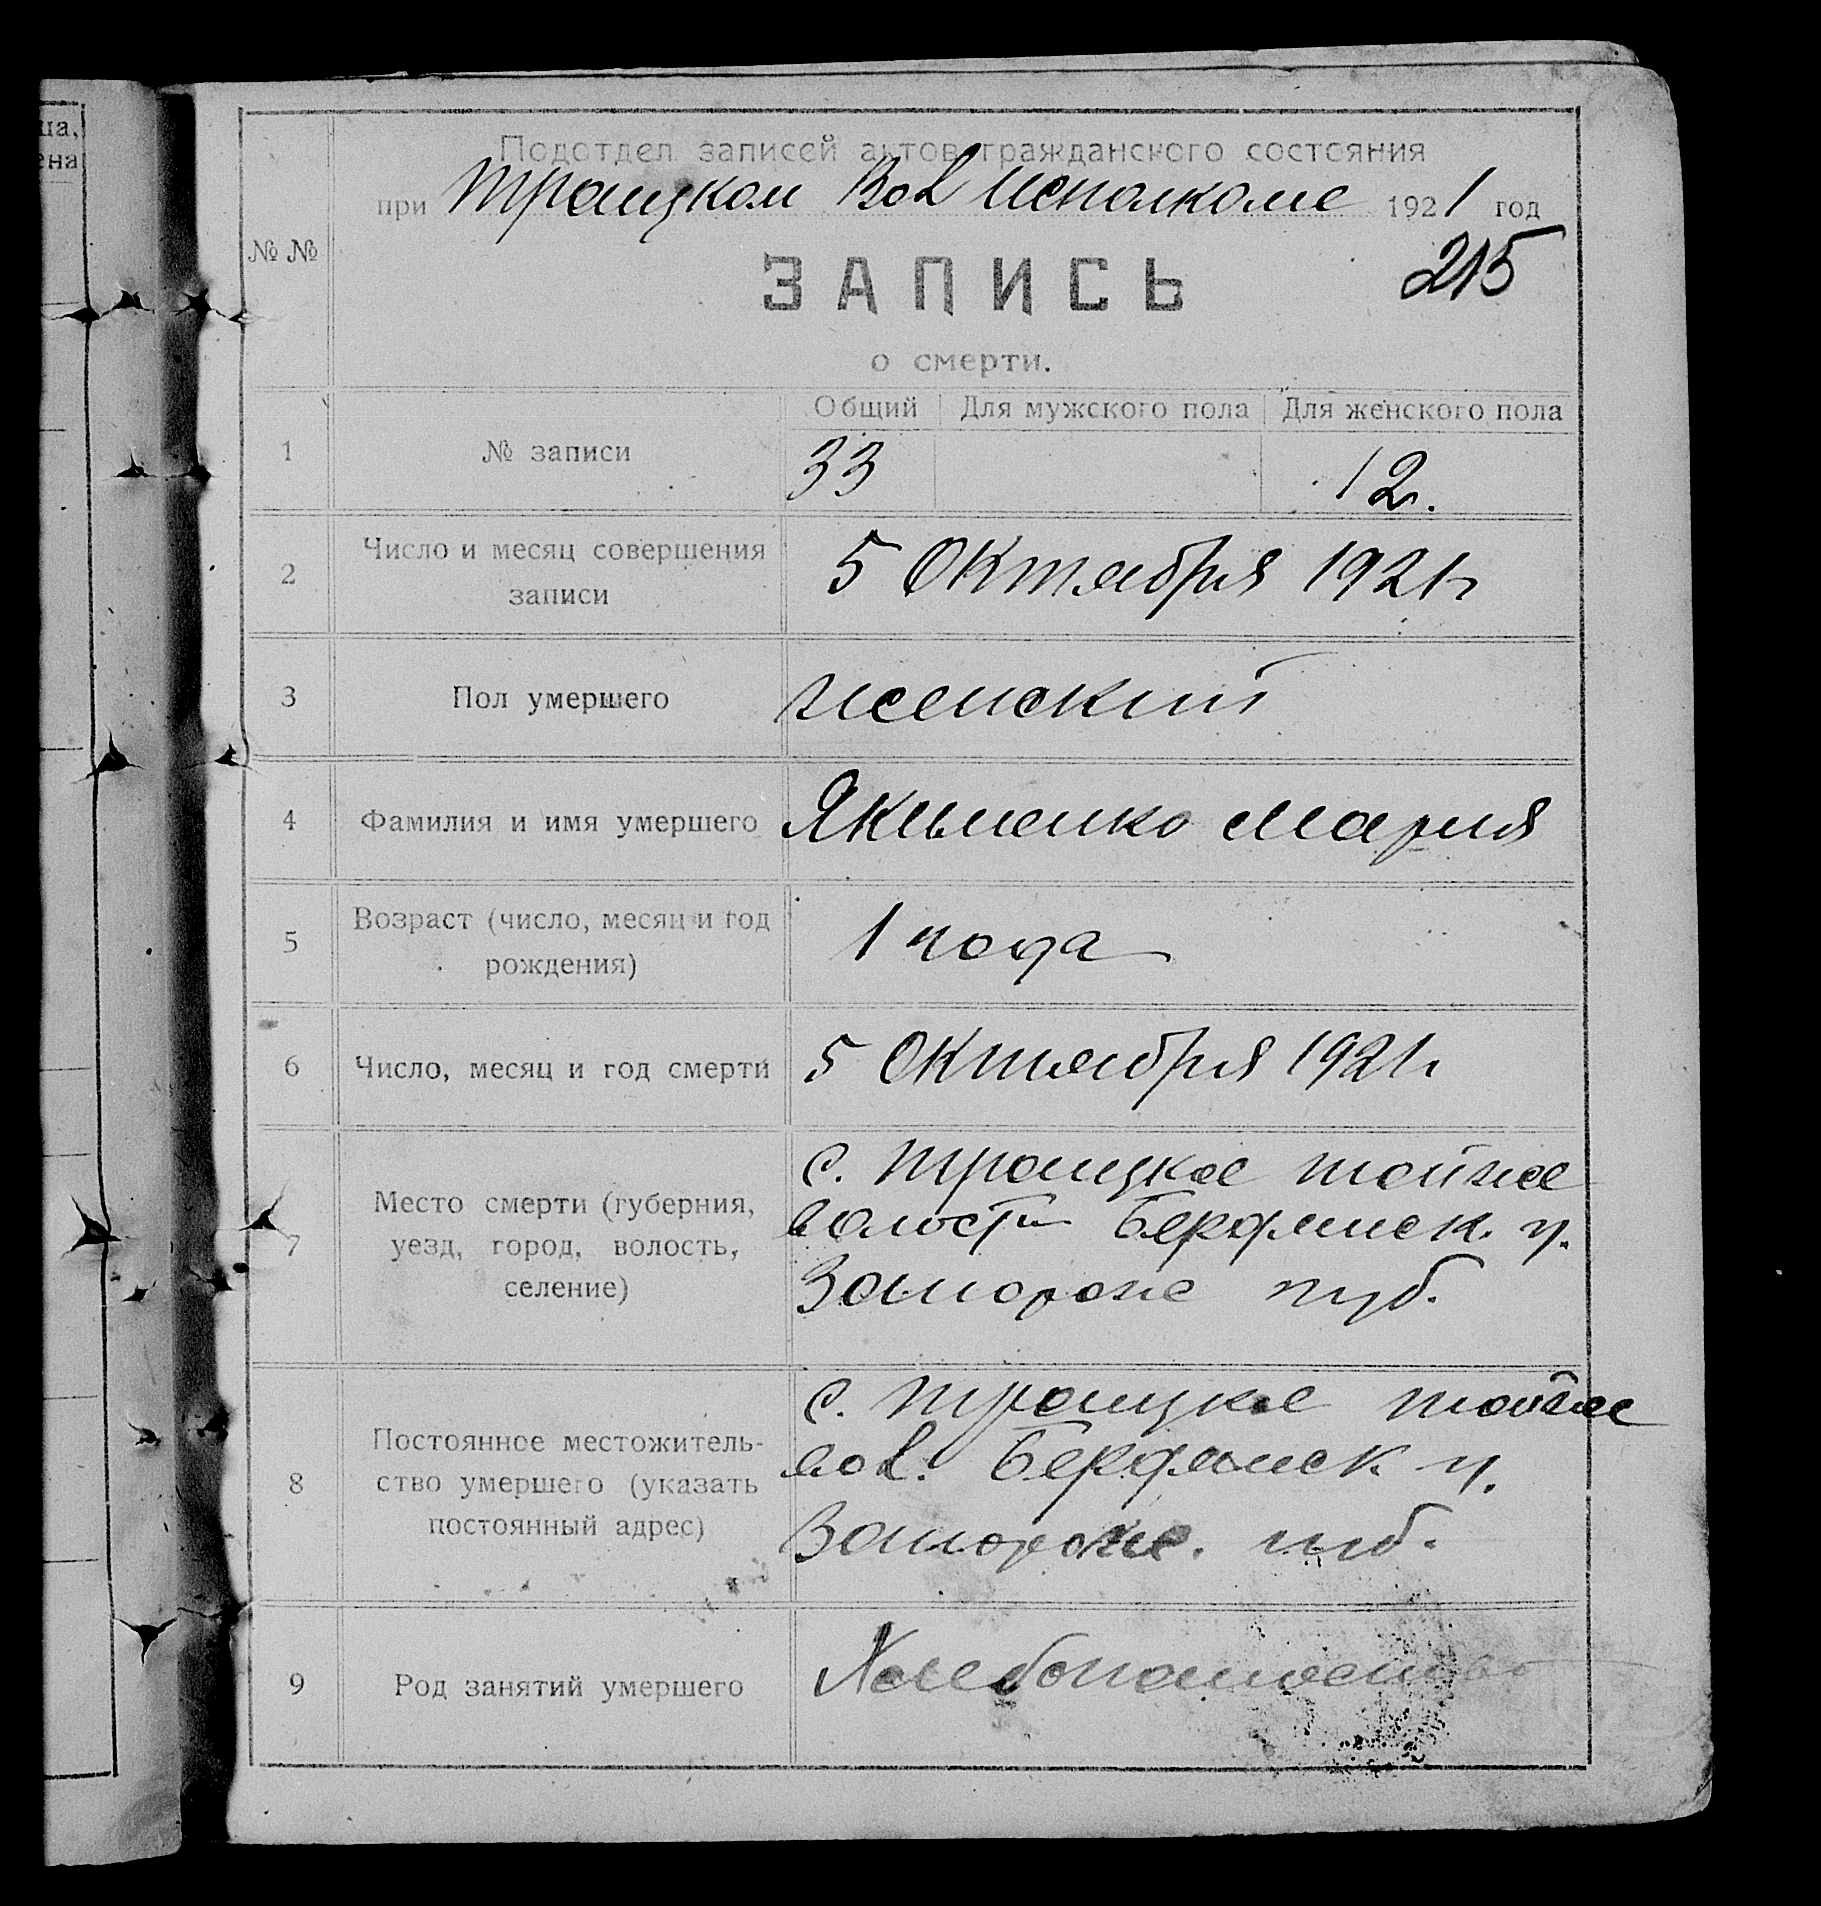 ца,
ена
Подотдел записей актов гражданского состояния
при Троицком Вол Исполкоме 1921 год
№ №
215
ЗАПИСЬ
о смерти.
Общий Для мужского пола Для женского пола
1 № записи 33 12.
2 Число и месяц совершения записи 5 Октября 1921 г
3 Пол умершего женский
4 Фамилия и имя умершего Якименко Мария
5 Возраст (число, месяц и год рождения) 1 года
6 Число, месяц и год смерти 5 Октября 1921 г
7 Место смерти (губерния, уезд, город, волость, селение)
с. Троицкое тойже
волости Бердянск. у.
Запорож губ.
8 Постоянное местожитель-
ство умершего (указать
постоянный адрес)
с. Троицкое тойже
вол. Бердянск у.
Запорож. губ.
9 Род занятий умершего Хлебопашество